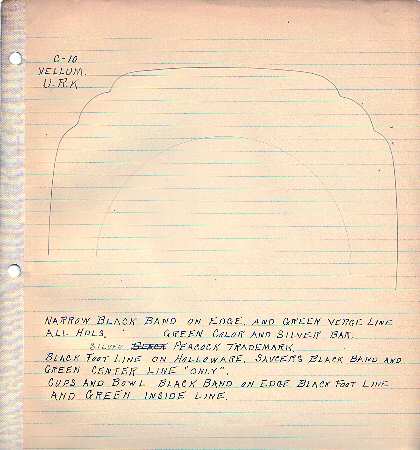 C-10
VELLUM.
U.R.K
NARROW BLACK BAND ON EDGE. AND GREEN VERGE LINE
ALL HDLS. GREEN COLOR AND SILVER BAR.
SILVER BLACK PEACOCK TRADEMARK.
BLACK FOOT LINE ON HOLLOWARE. SAUCERS BLACK BAND AND
GREEN CENTER LINE "ONLY".
CUPS AND BOWL BLACK BAND ON EDGE BLACK FOOT LINE
AND GREEN INSIDE LINE.